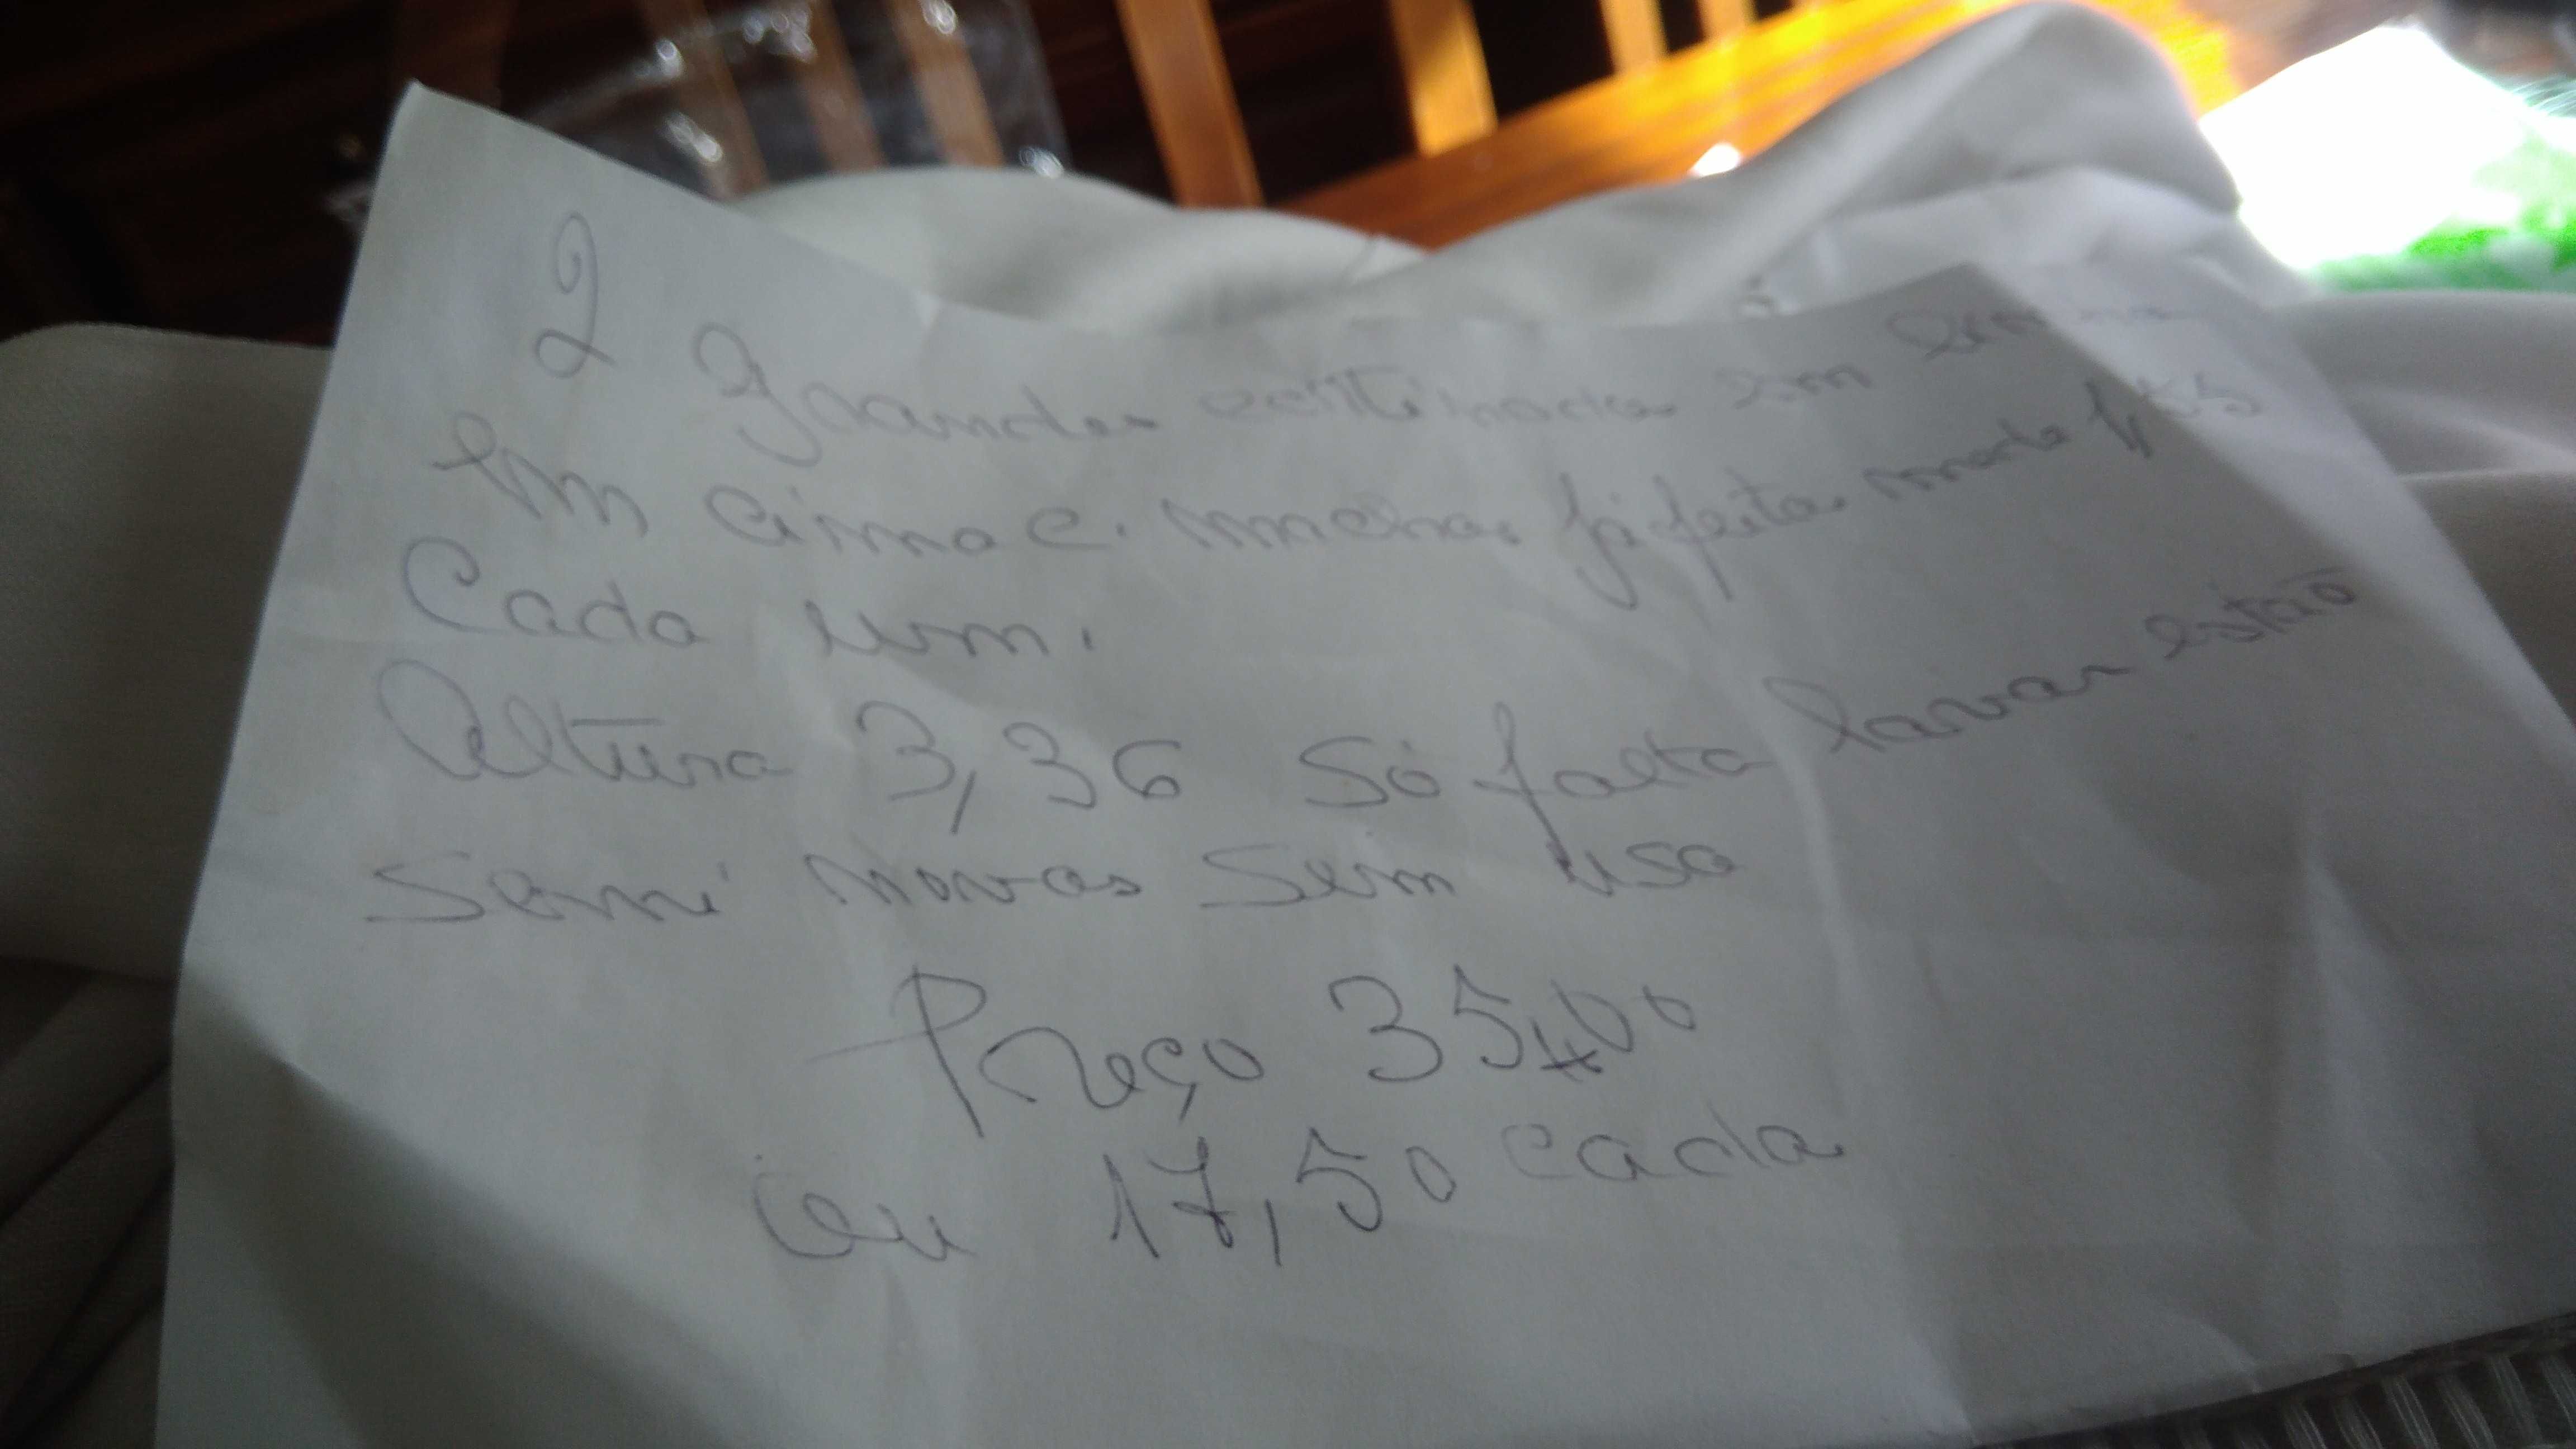 2 grandes cortinados em
Em cima c. unchas já feitas mede 1,55
Cada um.
Altura 3,36 só falta lavar estão
Semi novos sem uso
Preço 35,00
ou 17,50 cada